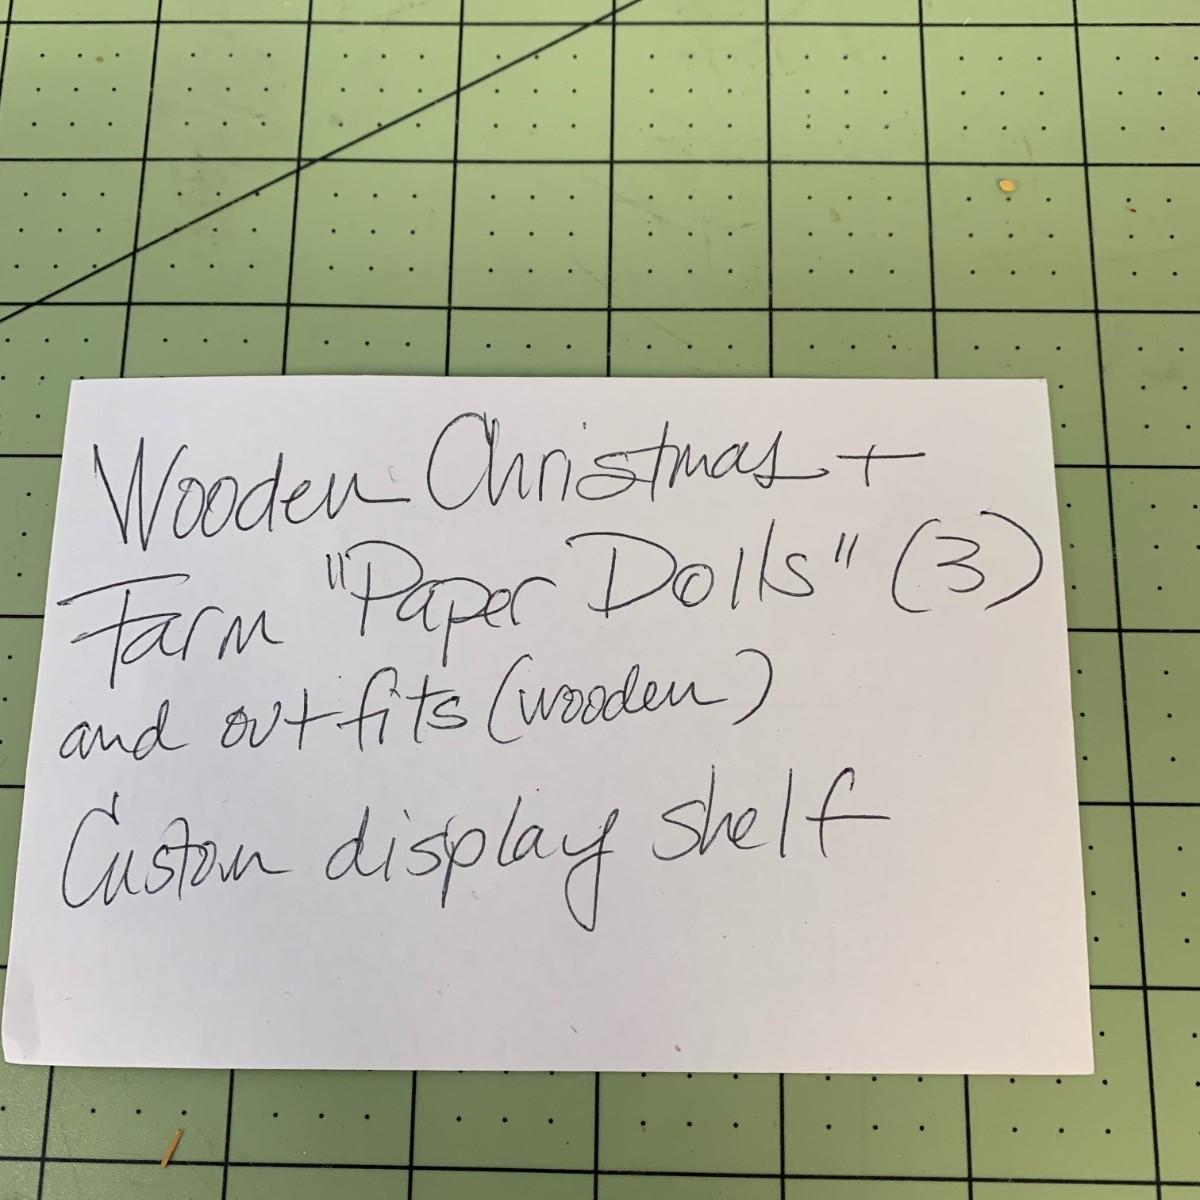 Wooden Christmas +
Farm "Paper Dolls" (3)
and outfits (wooden)
Custom display shelf